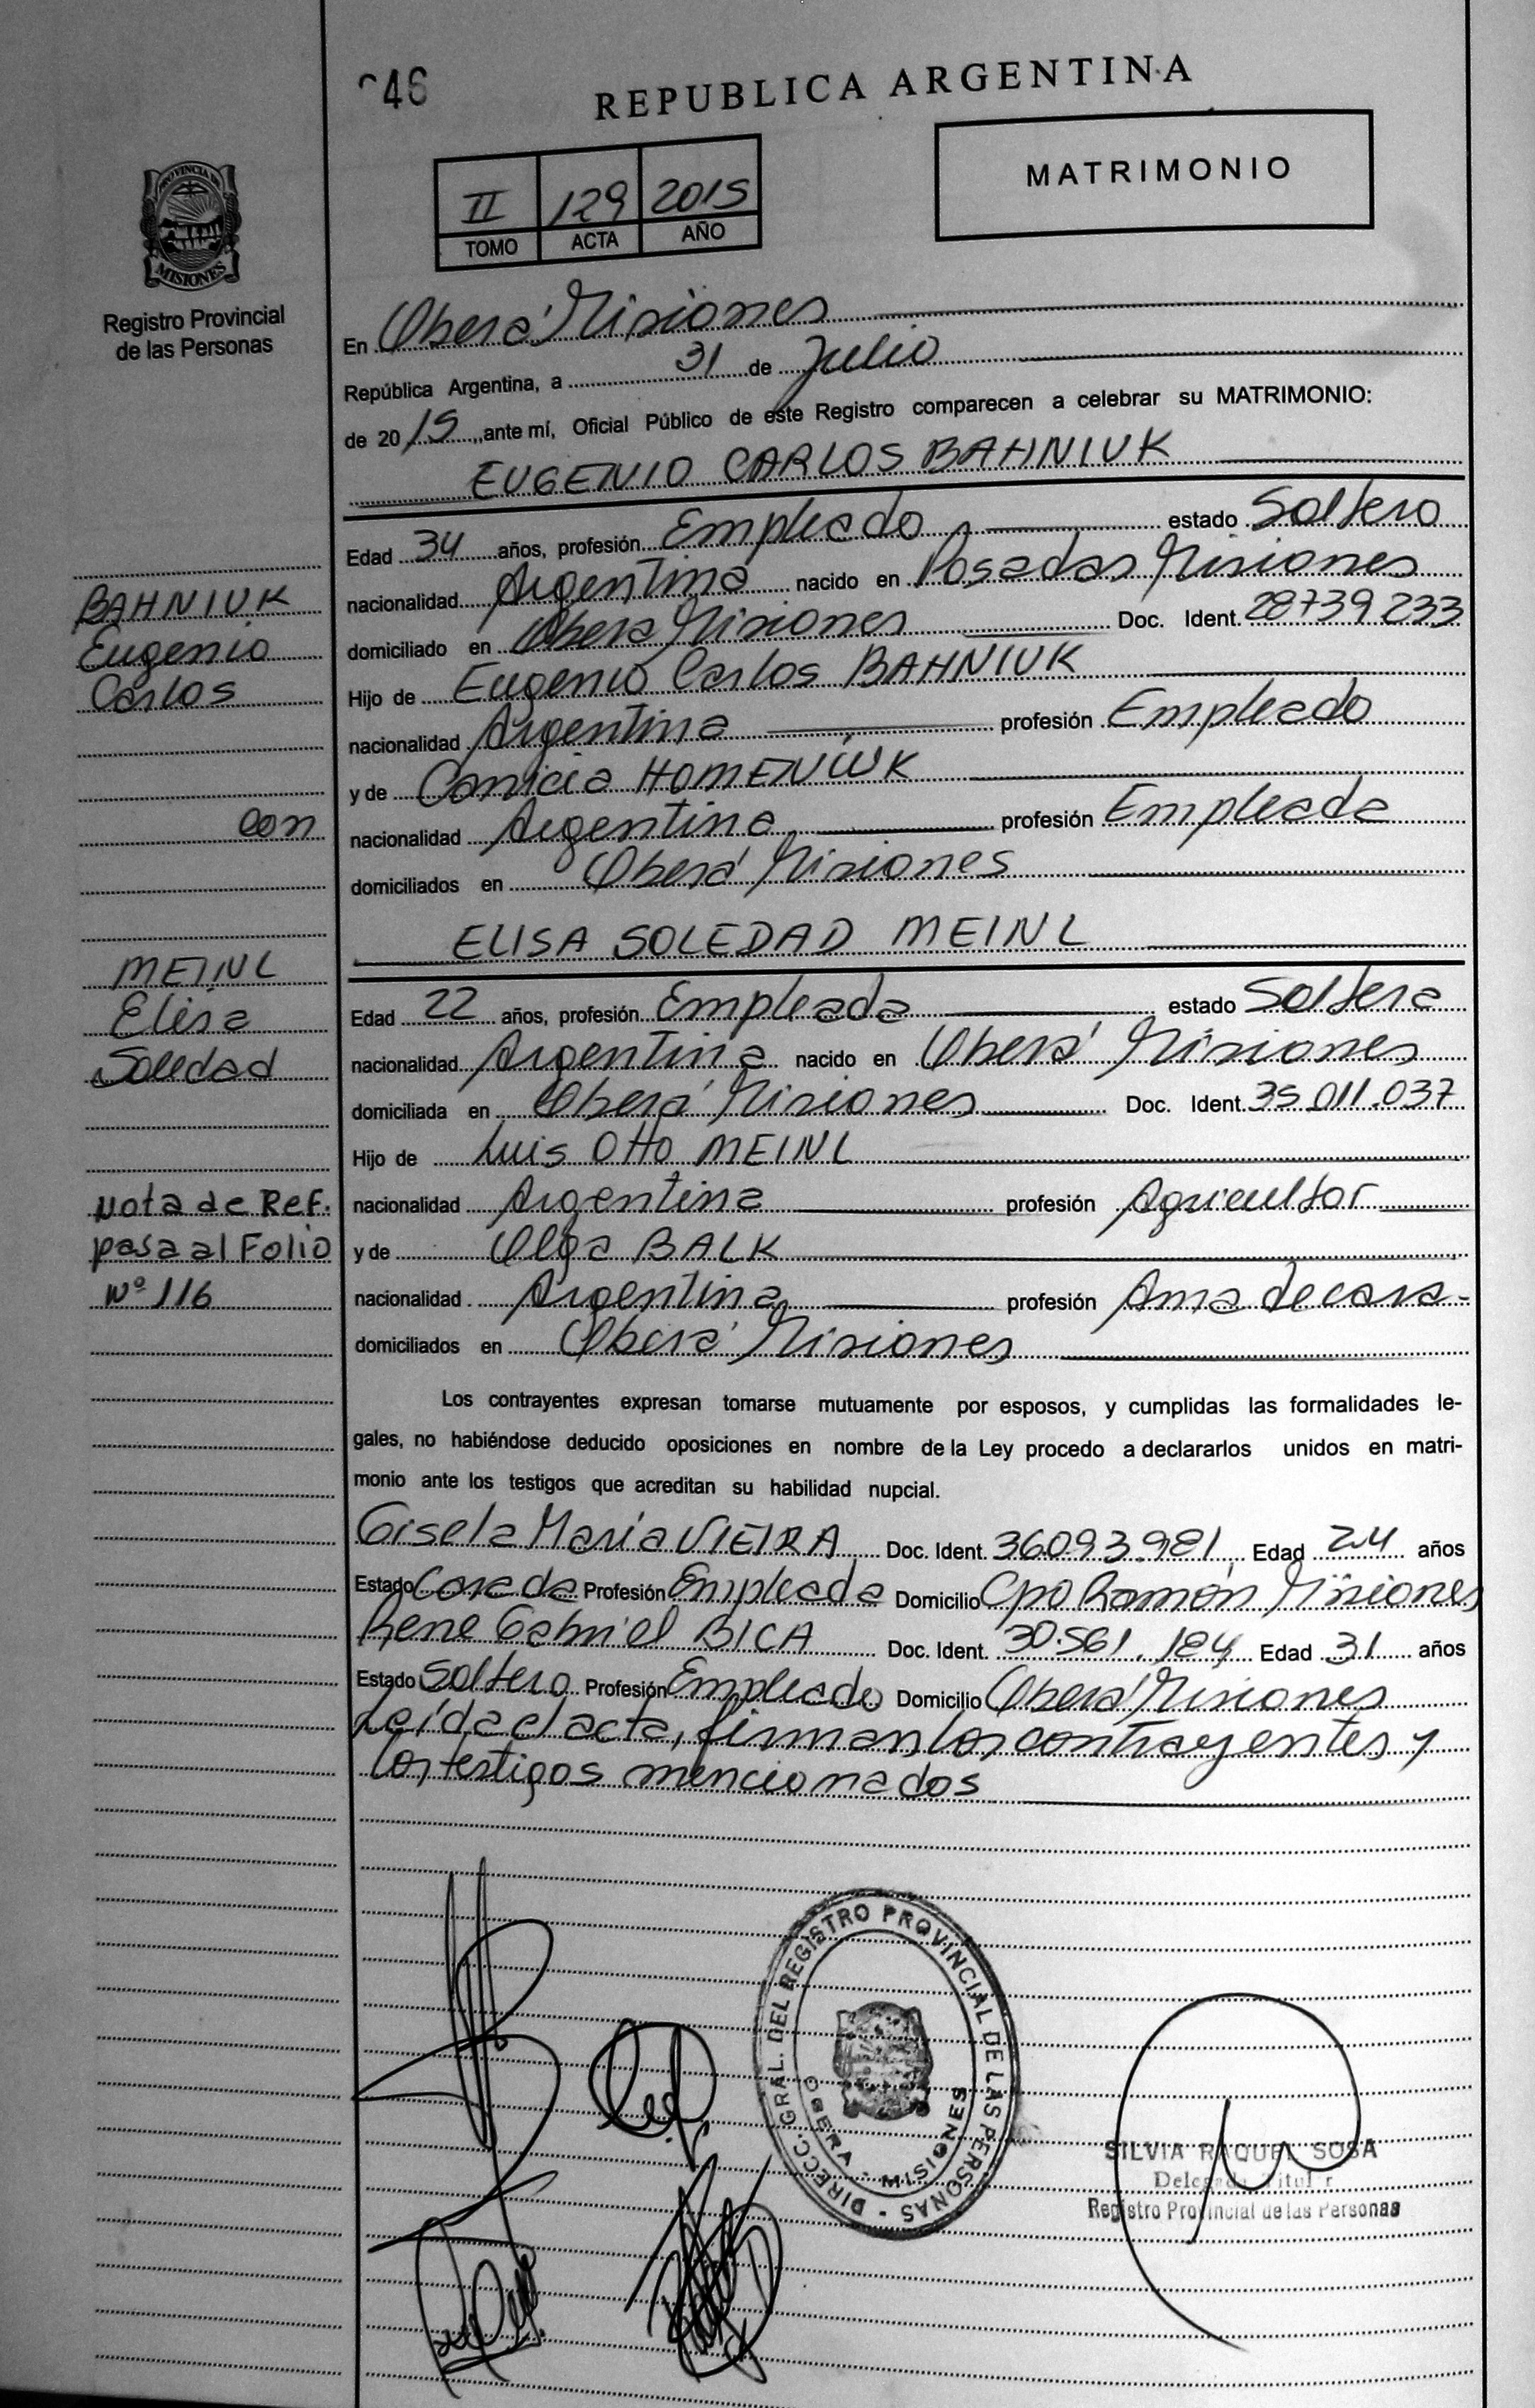 046
REPUBLICA ARGENTINA
MATRIMONIO
II 129 2015
TOMO ACTA AÑO
PROVINCIA DE
MISIONES
Registro Provincial
de las Personas
En Oberá Misiones
República Argentina, a 31 de Julio
de 2015, ante mí, Oficial Público de este Registro comparecen a celebrar su MATRIMONIO:
EUGENIO CARLOS BAHNIUK
Edad 34 años, profesión Empleado estado Soltero
nacionalidad Argentina nacido en Posadas Misiones
domiciliado en Oberá Misiones Doc. Ident. 28739.233
Hijo de Eugenio Carlos BAHNIUK
nacionalidad Argentina profesión Empleado
y de HOMENIUK
nacionalidad Argentina profesión Empleada
domiciliados en Oberá Misiones
BAHNIUK
Eugenio
Carlos
con
MEINL
Elisa
Soledad
Nota de Ref.
pasa al Folio
Nº 116
ELISA SOLEDAD MEINL
Edad 22 años, profesión Empleada estado Soltera
nacionalidad Argentina nacido en Oberá Misiones
domiciliada en Oberá Misiones Doc. Ident. 35.011.037
Hijo de Luis Otto MEINL
nacionalidad Argentina profesión Agricultor
y de Olga BALK
nacionalidad Argentina profesión Ama de casa
domiciliados en Oberá Misiones
Los contrayentes expresan tomarse mutuamente por esposos, y cumplidas las formalidades le-
gales, no habiéndose deducido oposiciones en nombre de la Ley procedo a declararlos unidos en matri-
monio ante los testigos que acreditan su habilidad nupcial.
Gisela María VIEIRA Doc. Ident. 36093.981 Edad 24 años
Estado Casada Profesión Empleada Domicilio Cpo Ramón Misiones
Rene Gabriel BICA Doc. Ident. 30.561.184 Edad 31 años
Estado Soltero Profesión Empleado Domicilio Oberá Misiones
Leída el acta, firman los contrayentes y
los testigos mencionados
DIRECC. GRAL. DEL REGISTRO PROVINCIAL DE LAS PERSONAS -
OBERA - MISIONES
SILVIA RAQUEL SOSA
Delegada Titular
Registro Provincial de las Personas